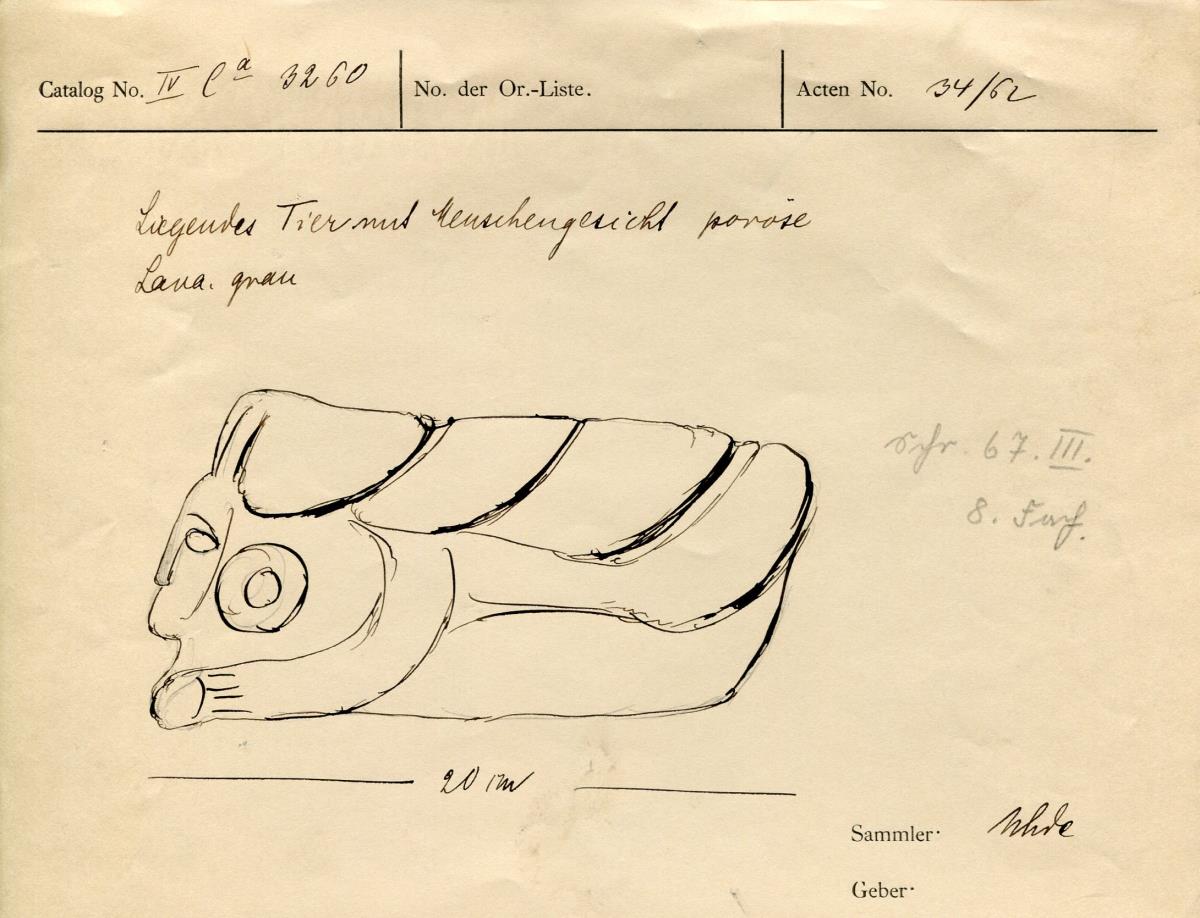 Catalog No. IV Ca 3260
No. der Or.-Liste.
Acten No. 34/62
Liegendes Tier mit Menschengesicht poröse
Lava. grau
Schr. 67. III.
8. Fach.
20 cm
Sammler: Uhde
Geber: